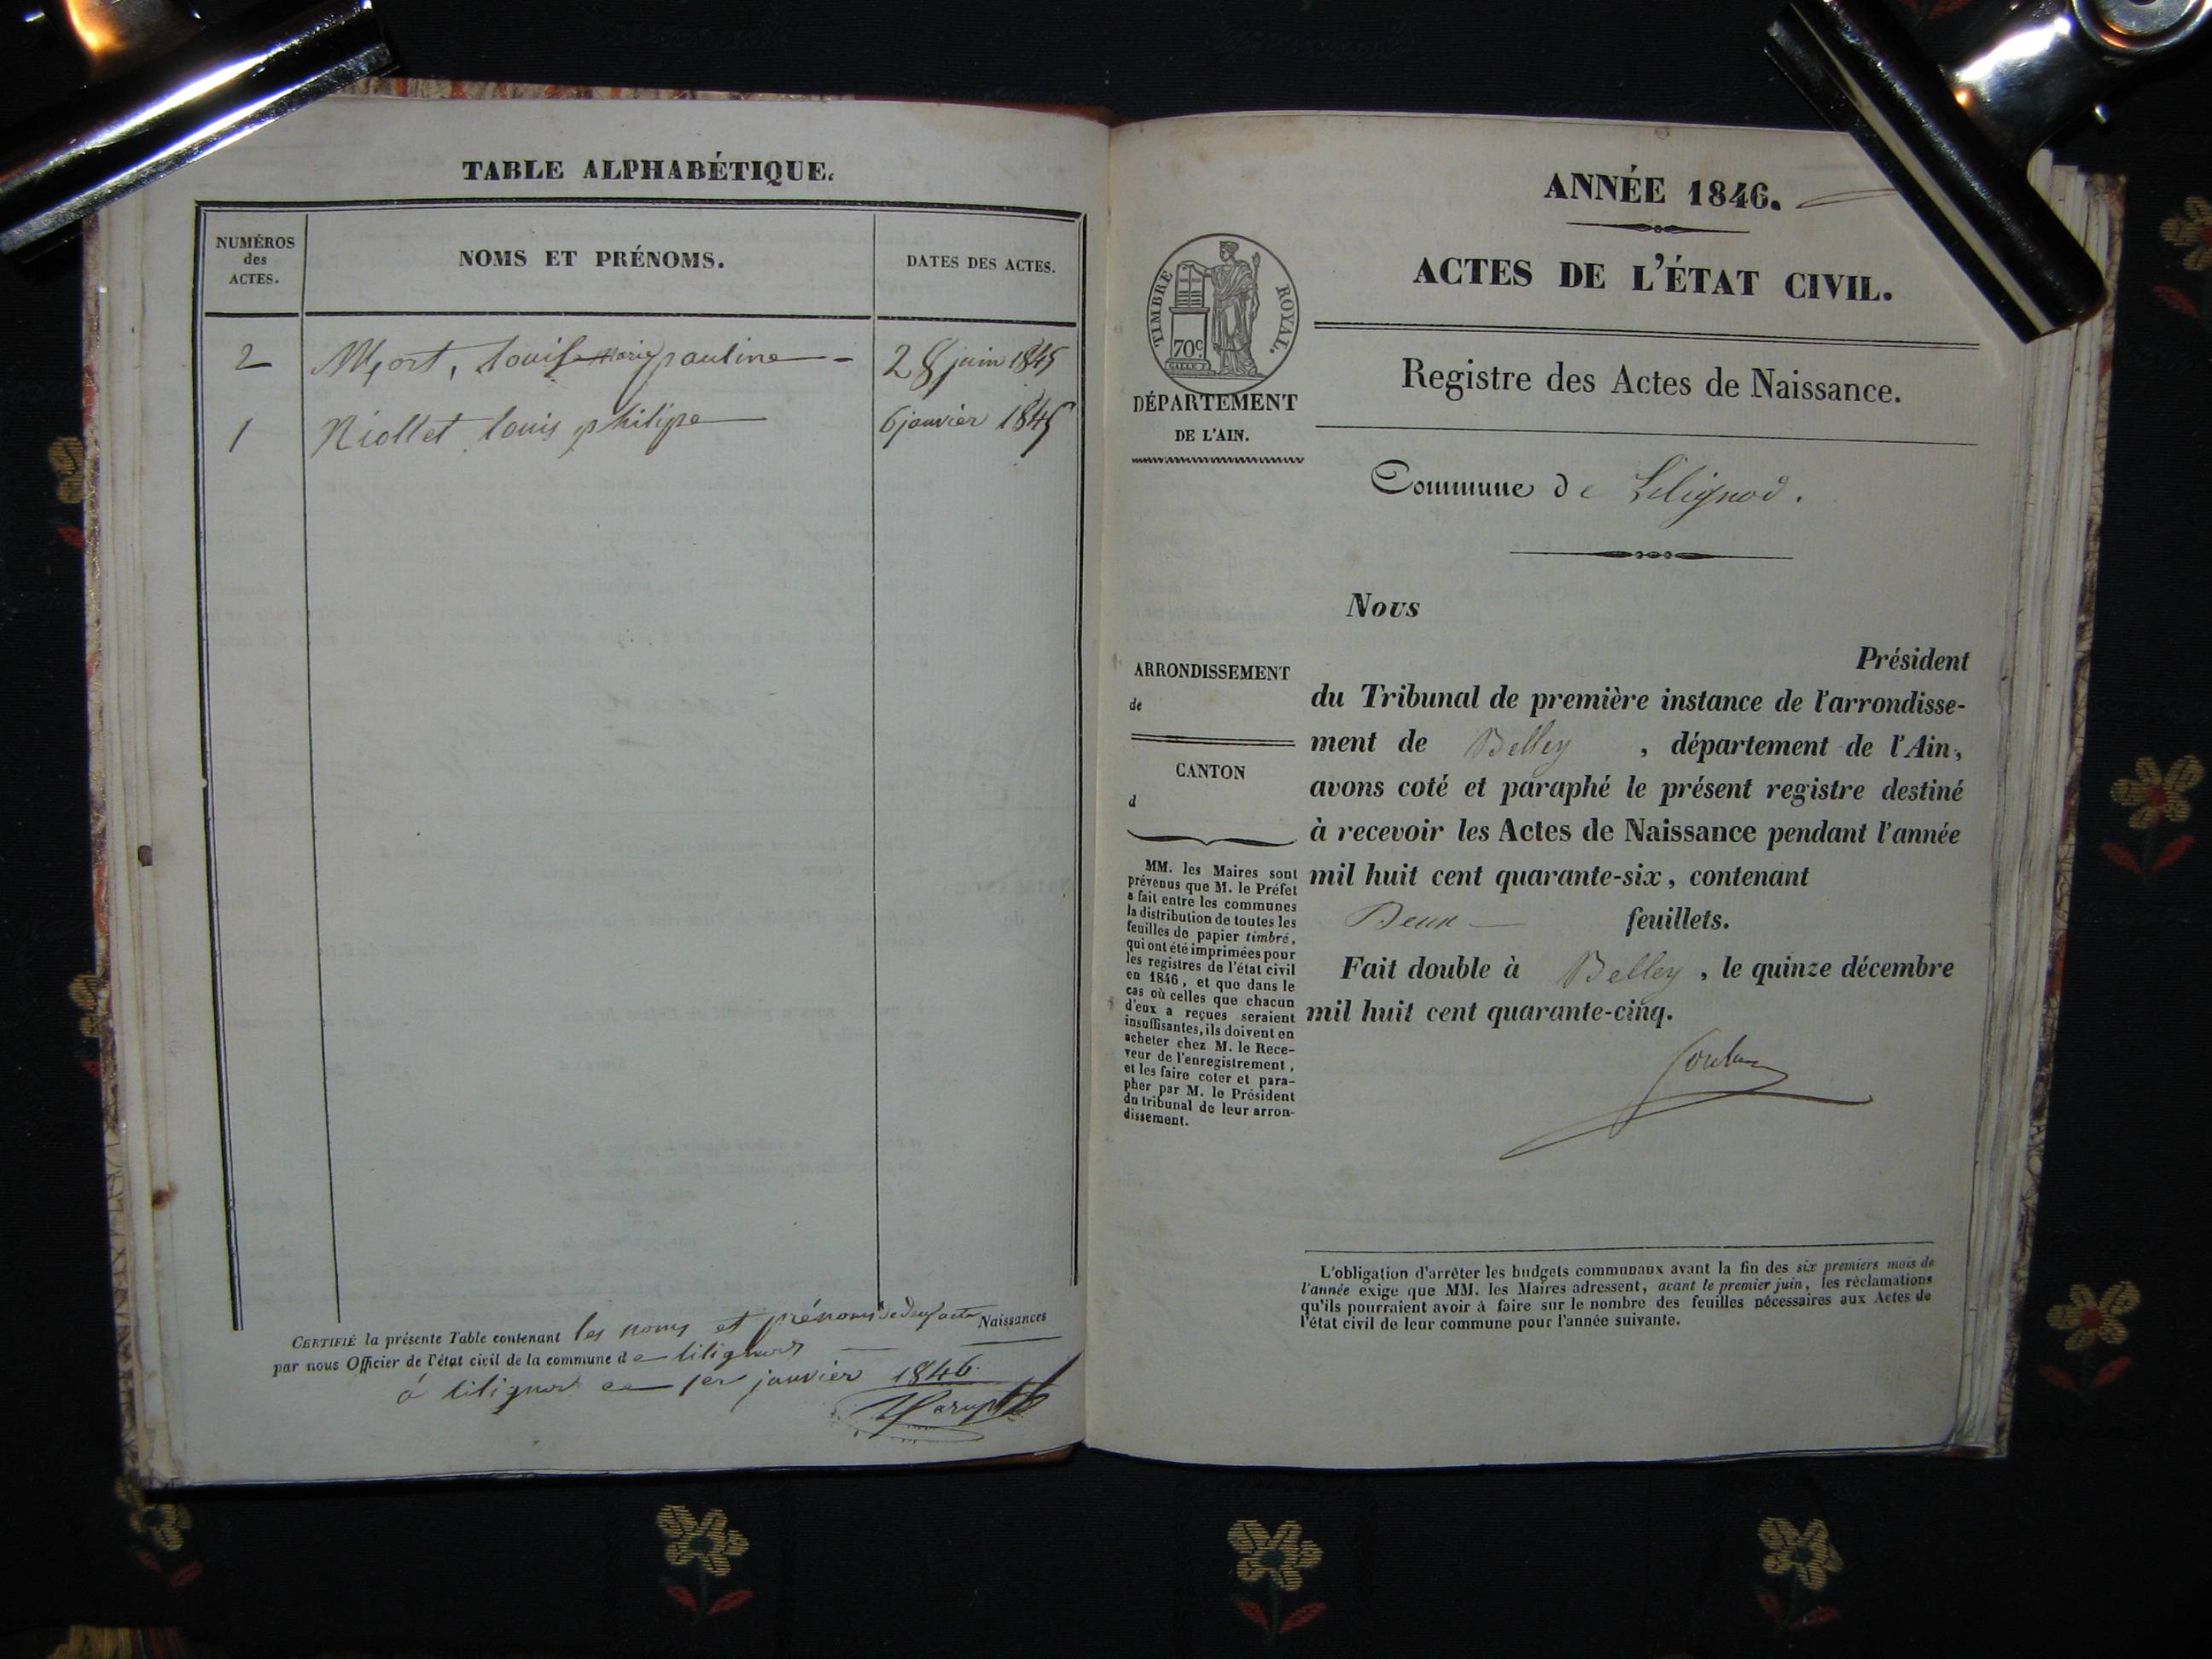 TABLE ALPHABÉTIQUE.
NUMÉROS
des
ACTES.
NOMS ET PRÉNOMS.
DATES DES ACTES.
2 louise marie pauline 28 juin 1845
1 Niollet louis philipe 6 janvier 1845
CERTIFIÉ la présente Table contenant les noms et prénoms de deux actes Naissances
par nous Officier de l'état civil de la commune de lilignod
à lilignod ce 1er janvier 1846.
ANNÉE 1846.
ACTES DE L'ÉTAT CIVIL.
TIMBRE ROYAL.
70c.
DÉPARTEMENT
DE L'AIN.
Registre des Actes de Naissance.
Commune de Lilignod.
Nous
Président
du Tribunal de première instance de l'arrondisse-
ment de Belley, département de l'Ain,
avons coté et paraphé le présent registre destiné
à recevoir les Actes de Naissance pendant l'année
mil huit cent quarante-six, contenant
Deux feuillets.
Fait double à Belley, le quinze décembre
mil huit cent quarante-cinq.
ARRONDISSEMENT
de
CANTON
d
MM. les Maires sont
prévenus que M. le Préfet
a fait entre les communes
la distribution de toutes les
feuilles de papier timbré,
qui ont été imprimées pour
les registres de l'état civil
en 1846, et que dans le
cas où celles que chacun
d'eux a reçues seraient
insuffisantes, ils doivent en
acheter chez M. le Rece-
veur de l'enregistrement,
et les faire coter et para-
pher par M. le Président
du tribunal de leur arron-
dissement.
L'obligation d'arrêter les budgets communaux avant la fin des six premiers mois de
l'année exige que MM. les Maires adressent, avant le premier juin, les réclamations
qu'ils pourraient avoir à faire sur le nombre des feuilles nécessaires aux Actes de
l'état civil de leur commune pour l'année suivante.